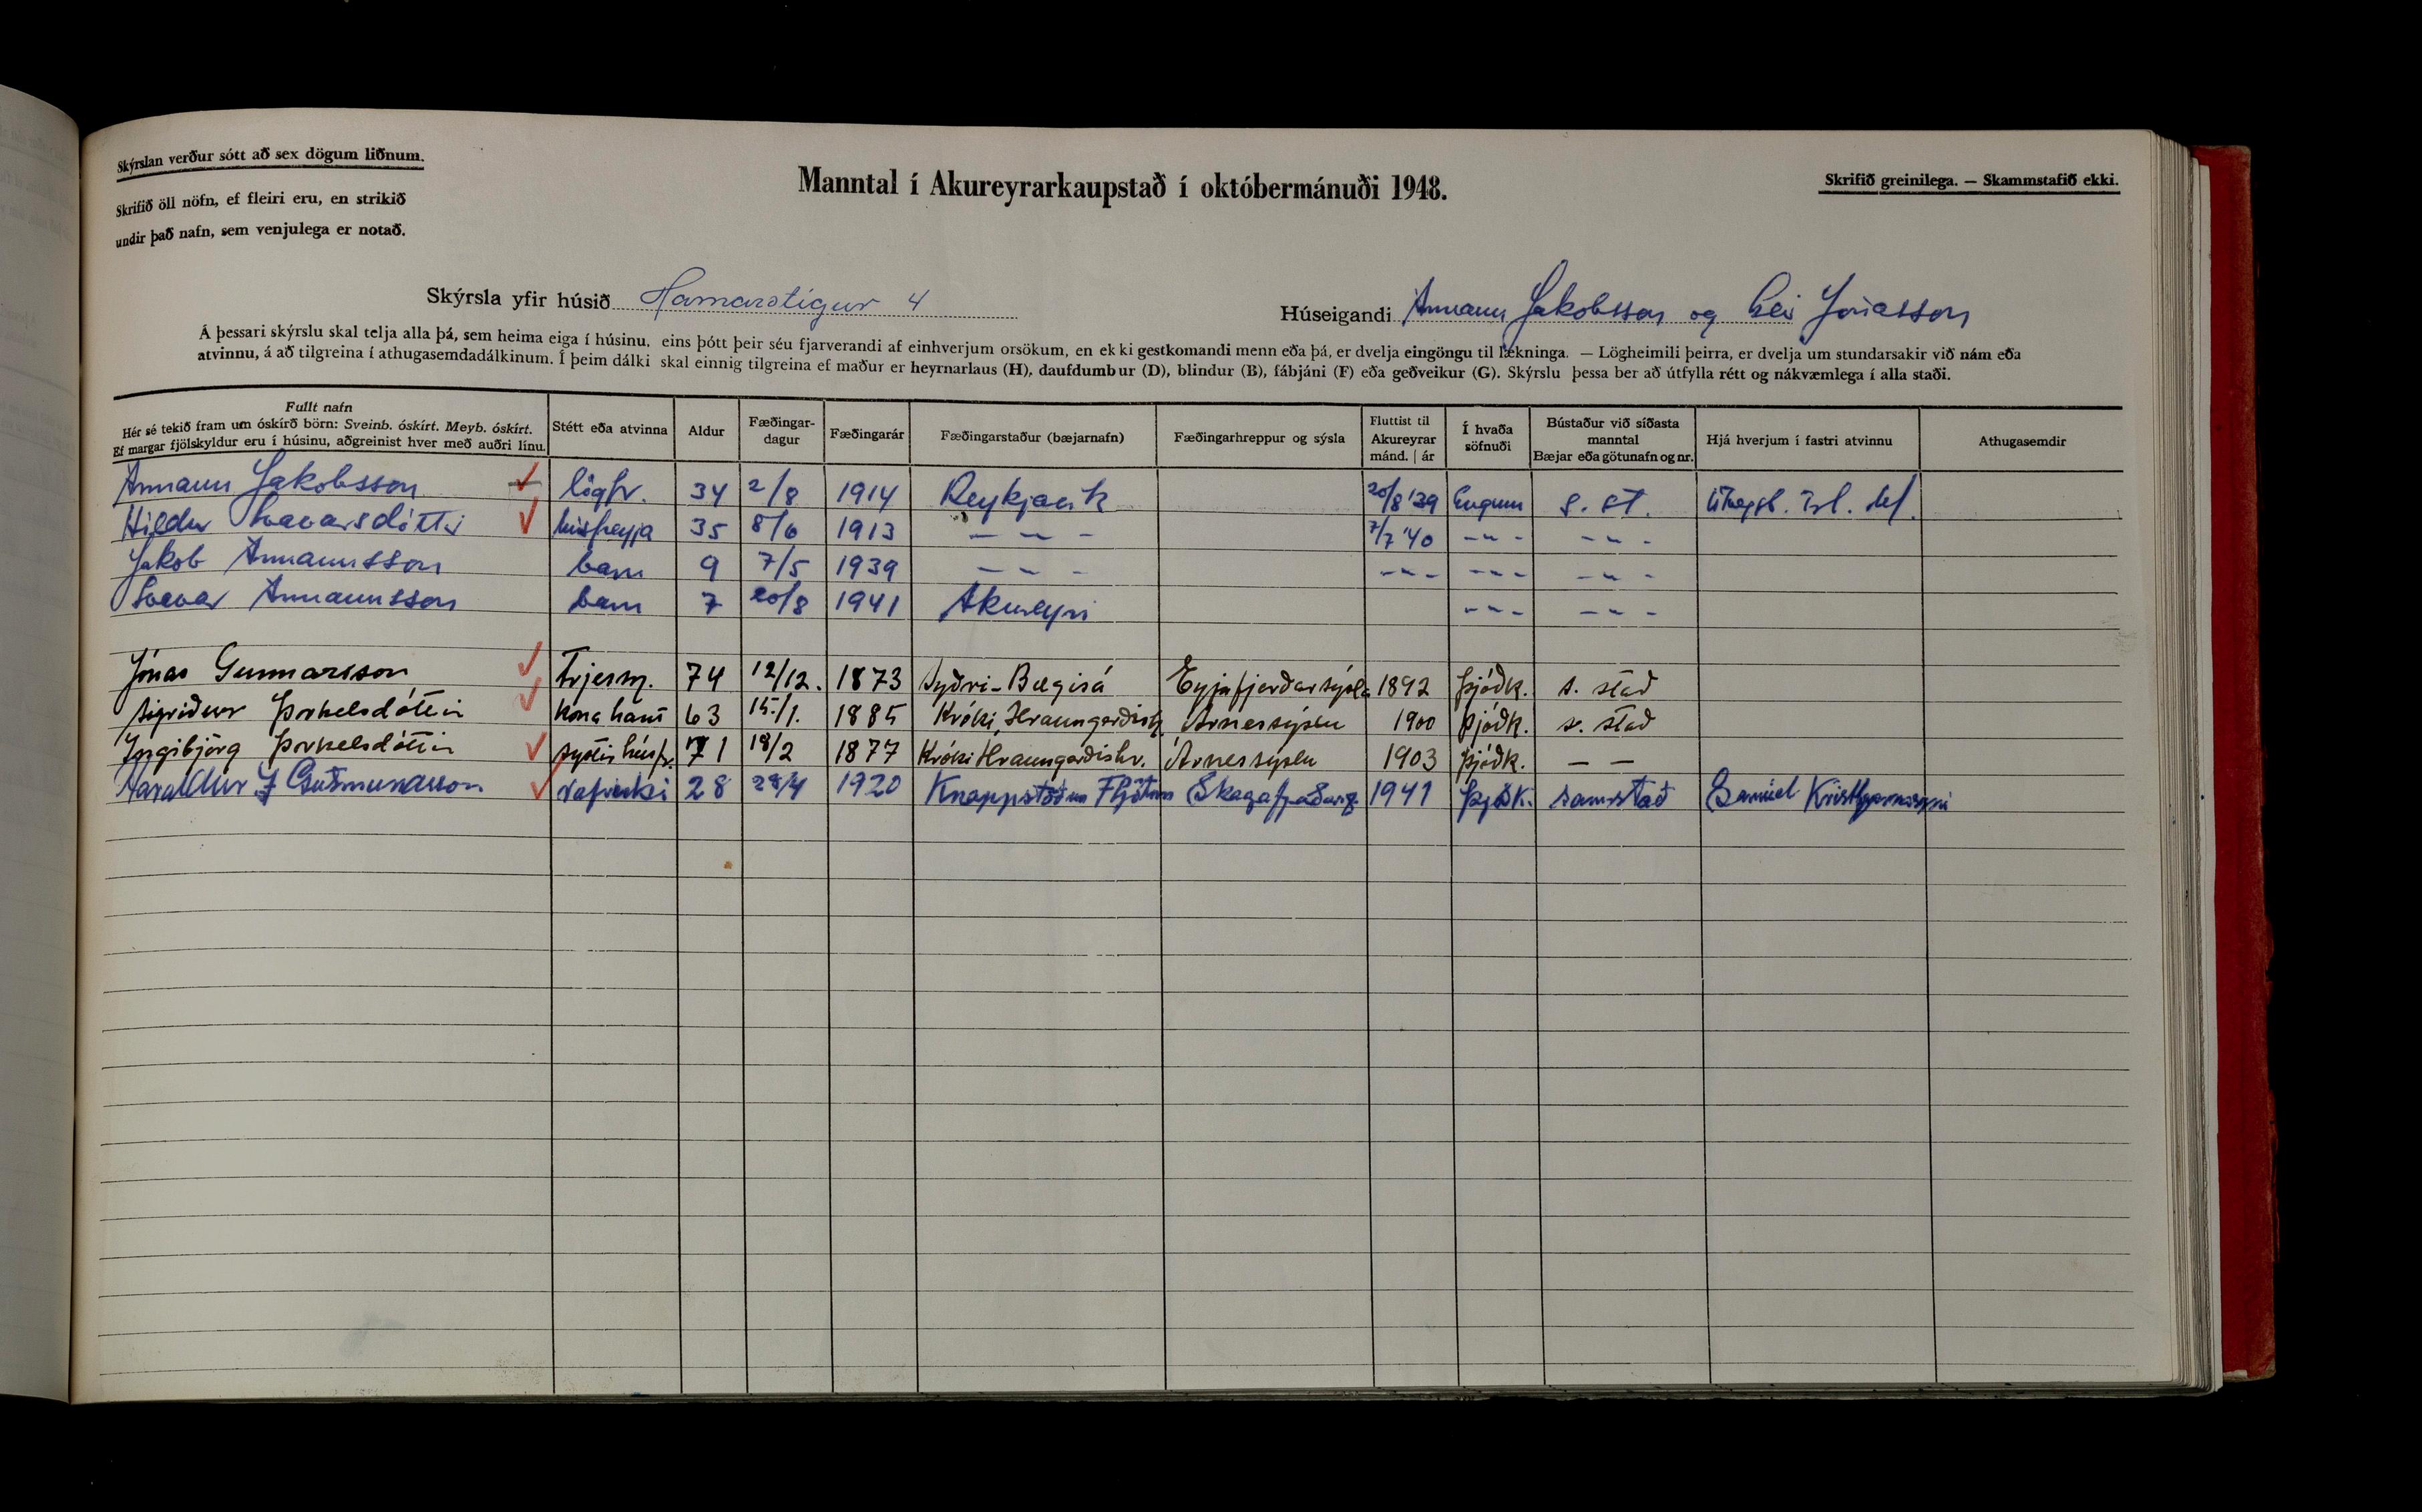 Skýrslan verður sótt að sex dögum liðnum.
Skrifið öll nöfn, ef fleiri eru, en strikið
undir það nafn, sem venjulega er notað.
Manntal í Akureyrarkaupstað í októbermánuði 1948.
Skrifið greinilega. — Skammstafið ekki.
Skýrsla yfir húsið Hamarstígur 4
Húseigandi Ármann Jakobsson og Geir Jónasson
Á þessari skýrslu skal telja alla þá, sem heima eiga í húsinu, eins þótt þeir séu fjarverandi af einhverjum orsökum, en ekki gestkomandi menn eða þá, er dvelja eingöngu til lækninga. — Lögheimili þeirra, er dvelja um stundarsakir við nám eða
atvinnu, á að tilgreina í athugasemdadálkinum. Í þeim dálki skal einnig tilgreina ef maður er heyrnarlaus (H), daufdumbur (D), blindur (B), fábjáni (F) eða geðveikur (G). Skýrslu þessa ber að útfylla rétt og nákvæmlega í alla staði.
Fullt nafn
Hér sé tekið fram um óskírð börn: Sveinb. óskírt. Meyb. óskírt.
Ef margar fjölskyldur eru í húsinu, aðgreinist hver með auðri línu.
Stétt eða atvinna
Aldur
Fæðingar-
dagur
Fæðingarár
Fæðingarstaður (bæjarnafn)
Fæðingarhreppur og sýsla
Fluttist til
Akureyrar
mánd. | ár
Í hvaða
söfnuði
Bústaður við síðasta
manntal
Bæjar eða götunafn og nr.
Hjá hverjum í fastri atvinnu
Athugasemdir
Ármann Jakobsson lögfr. 34 2/8 1914 Reykjavík 20/8 '39 Engum s. st. Útvegsb. Ísl. hf.
Hildur Svavarsdóttir húsfreyja 35 8/6 1913 — " — 7/7 '40 — " — — " —
Jakob Ármannsson barn 9 7/5 1939 — " — — " — — " — — " —
Svavar Ármannsson barn 7 20/8 1941 Akureyri — " — — " —
Jónas Gunnarsson Trjesm. 74 12/12. 1873 Syðri-Bægisá Eyjafjarðarsýsla 1892 Þjóðk. s. stað
Sigríður Þorkelsdóttir Kona hans 63 15/1. 1885 Króki, Hraungerðish. Árnessýslu 1900 Þjóðk. s. stað
Ingibjörg Þorkelsdóttir systir húsfr. 71 18/2 1877 Króki Hraungerðishr. Árnessýslu 1903 Þjóðk. — —
Haraldur J Guðmundsson rafvirki 28 28/4 1920 Knappstöðum Fljótum Skagafjaðars. 1941 Þjóðk. samastað Samúel Kristbjarnarsyni